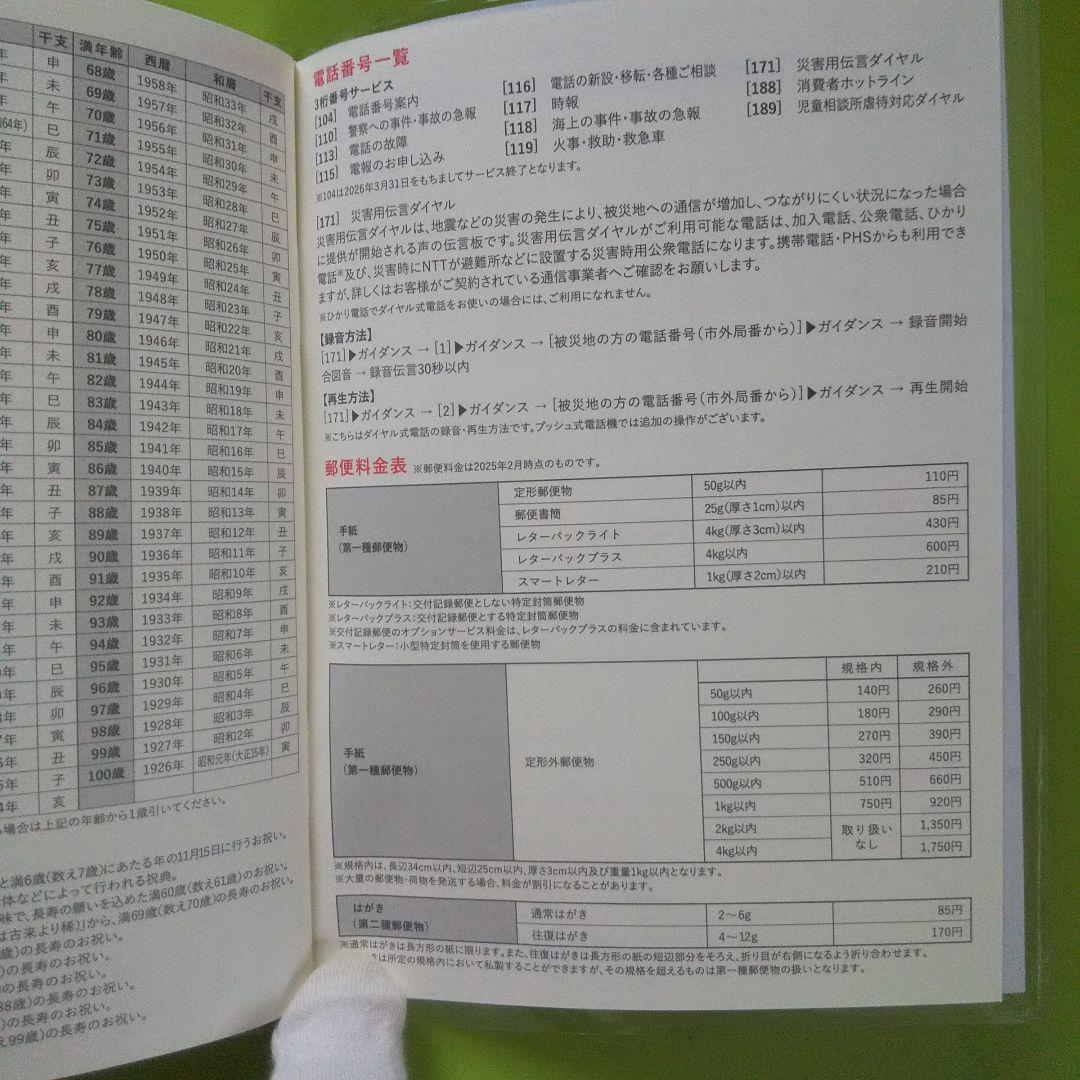 干支 満年齢 西暦 和暦 干支
年 申 68歳 1958年 昭和33年 戌
年 未 69歳 1957年 昭和32年 酉
年 午 70歳 1956年 昭和31年 申
64年) 巳 71歳 1955年 昭和30年 未
年 辰 72歳 1954年 昭和29年 午
年 卯 73歳 1953年 昭和28年 巳
年 寅 74歳 1952年 昭和27年 辰
年 丑 75歳 1951年 昭和26年 卯
年 子 76歳 1950年 昭和25年 寅
年 亥 77歳 1949年 昭和24年 丑
年 戌 78歳 1948年 昭和23年 子
年 酉 79歳 1947年 昭和22年 亥
年 申 80歳 1946年 昭和21年 戌
年 未 81歳 1945年 昭和20年 酉
年 午 82歳 1944年 昭和19年 申
年 巳 83歳 1943年 昭和18年 未
年 辰 84歳 1942年 昭和17年 午
年 卯 85歳 1941年 昭和16年 巳
年 寅 86歳 1940年 昭和15年 辰
年 丑 87歳 1939年 昭和14年 卯
年 子 88歳 1938年 昭和13年 寅
年 亥 89歳 1937年 昭和12年 丑
年 戌 90歳 1936年 昭和11年 子
年 酉 91歳 1935年 昭和10年 亥
年 申 92歳 1934年 昭和9年 戌
年 未 93歳 1933年 昭和8年 酉
年 午 94歳 1932年 昭和7年 申
年 巳 95歳 1931年 昭和6年 未
年 辰 96歳 1930年 昭和5年 午
年 卯 97歳 1929年 昭和4年 巳
7年 寅 98歳 1928年 昭和3年 辰
6年 丑 99歳 1927年 昭和2年 卯
5年 子 100歳 1926年 昭和元年(大正15年) 寅
4年 亥
場合は上記の年齢から1歳引いてください。
と満6歳(数え7歳)にあたる年の11月15日に行うお祝い。
体などによって行われる祝典。
味で、長寿の願いを込めた満60歳(数え61歳)のお祝い。
は古来より稀)」から、満69歳(数え70歳)の長寿のお祝い。
歳)の長寿のお祝い。
)の長寿のお祝い。
の長寿のお祝い。
88歳)の長寿のお祝い。
)の長寿のお祝い。
え99歳)の長寿のお祝い。
電話番号一覧
3桁番号サービス
[104] 電話番号案内
[110] 警察への事件・事故の急報
[113] 電話の故障
[115] 電報のお申し込み
[116] 電話の新設・移転・各種ご相談
[117] 時報
[118] 海上の事件・事故の急報
[119] 火事・救助・救急車
[171] 災害用伝言ダイヤル
[188] 消費者ホットライン
[189] 児童相談所虐待対応ダイヤル
※104は2026年3月31日をもちましてサービス終了となります。
[171] 災害用伝言ダイヤル
災害用伝言ダイヤルは、地震などの災害の発生により、被災地への通信が増加し、つながりにくい状況になった場合
に提供が開始される声の伝言板です。災害用伝言ダイヤルがご利用可能な電話は、加入電話、公衆電話、ひかり
電話※及び、災害時にNTTが避難所などに設置する災害時用公衆電話になります。携帯電話・PHSからも利用でき
ますが、詳しくはお客様がご契約されている通信事業者へご確認をお願いします。
※ひかり電話でダイヤル式電話をお使いの場合には、ご利用になれません。
【録音方法】
[171]▶ガイダンス → [1]▶ガイダンス → [被災地の方の電話番号(市外局番から)]▶ガイダンス → 録音開始
合図音 → 録音伝言30秒以内
【再生方法】
[171]▶ガイダンス → [2]▶ガイダンス → [被災地の方の電話番号(市外局番から)]▶ガイダンス → 再生開始
※こちらはダイヤル式電話の録音・再生方法です。プッシュ式電話機では追加の操作がございます。
郵便料金表 ※郵便料金は2025年2月時点のものです。
手紙
(第一種郵便物)
定形郵便物 50g以内 110円
郵便書簡 25g(厚さ1cm)以内 85円
レターパックライト 4kg(厚さ3cm)以内 430円
レターパックプラス 4kg以内 600円
スマートレター 1kg(厚さ2cm)以内 210円
※レターパックライト：交付記録郵便としない特定封筒郵便物
※レターパックプラス：交付記録郵便とする特定封筒郵便物
※交付記録郵便のオプションサービス料金は、レターパックプラスの料金に含まれています。
※スマートレター：小型特定封筒を使用する郵便物
手紙
(第一種郵便物)
定形外郵便物
規格内 規格外
50g以内 140円 260円
100g以内 180円 290円
150g以内 270円 390円
250g以内 320円 450円
500g以内 510円 660円
1kg以内 750円 920円
2kg以内 取り扱いなし 1,350円
4kg以内 1,750円
※規格内は、長辺34cm以内、短辺25cm以内、厚さ3cm以内及び重量1kg以内となります。
※大量の郵便物・荷物を発送する場合、料金が割引になることがあります。
はがき
(第二種郵便物)
通常はがき 2～6g 85円
往復はがき 4～12g 170円
※通常はがきは長方形の紙に限ります。また、往復はがきは長方形の紙の短辺部分をそろえ、折り目が右側になるよう折り合わせます。
は所定の規格内において私製することができますが、その規格を超えるものは第一種郵便物の扱いとなります。